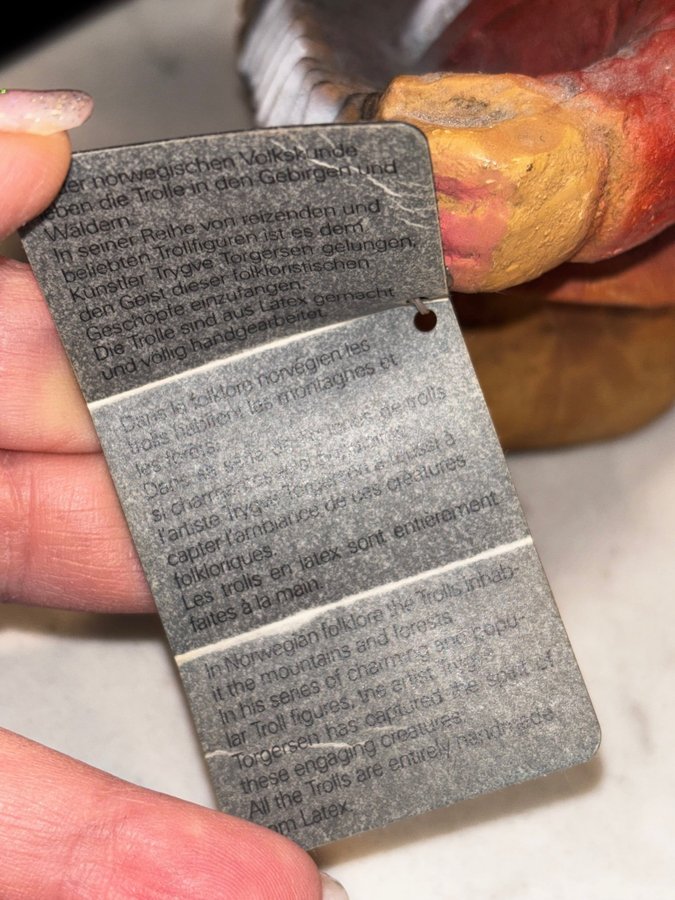 er norwegischen Volkskunde
eben die Trolle in den Gebirgen und
Wäldern.
In seiner Reihe von reizenden und
beliebten Trollfiguren ist es dem
Künstler Trygve Torgersen gelungen,
den Geist dieser folkloristischen
Geschöpfe einzufangen.
Die Trolle sind aus Latex gemacht
und völlig handgearbeitet.
Dans le folklore norvégien les
trolls habitent les montagnes et
les
Dans de trolls
si
l'artiste Trygve Torgersen a réussi à
capter l'ambiance de ces créatures
folkloriques.
Les trolls en latex sont entièrement
faites à la main.
In Norwegian folklore the Trolls inhab-
it the mountains and forests.
In his series of charming and popu-
lar Troll figures, the artist
Torgersen has captured the spirit of
these engaging creatures.
All the Trolls are entirely handmade
om Latex.